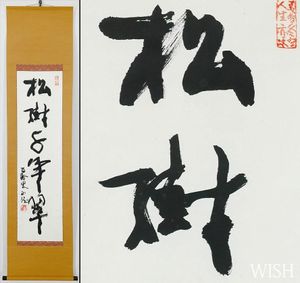 松樹千年翠
松樹
WISH